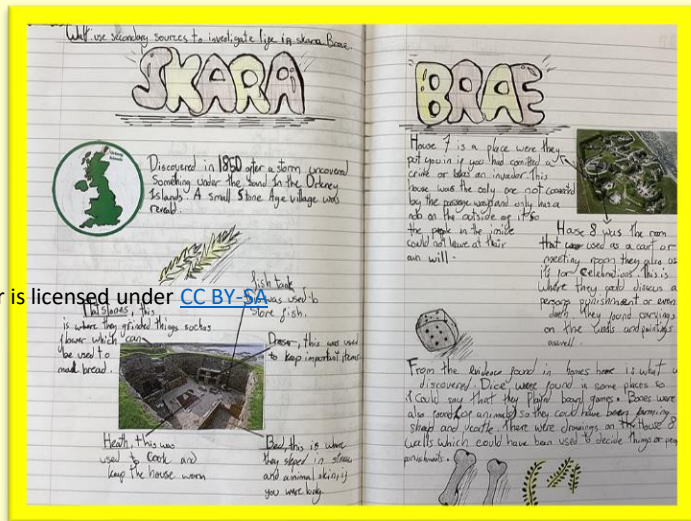 Walt: use secondary sources to investigate life in skara Brae.
SKARA
BRAE
Discovered in 1850 after a storm uncovered
something under the sand In the Orkney
Islands. A small Stone Age village was
reveald.
fish tank
this was used to
store fish.
Flat stones, this
is where they grinded things suchas
flower which can
be used to
mad bread.
Dresser, this was used
to keep important items
Heath, this was
used to cook and
keep the house worm
Bed, this is where
they sleped in straw
and animal skin, if
you were lucky.
House 7 is a place were they
put you in if you had comited a
crime or was an invader. This
house was the only one not connected
by the passage ways and only has a
on the outside of it so
the people in the inside
could not leave at their
own will.
House 8 was the room
that was used as a cort or
meeting room they also use
it for celebrations. This is
where they could discus a
persons punishment or even
death. they found carvings
on the walls and paintings
aswell.
From the evidence found in homes here is what
discovered. Dice were found in some places so
I could say that they played board games. Bones were
also found (of animals) so they could have been farming
sheep and . There were drawings on the House 8
walls which could have been used to decide things or
punishments.
r is licensed under CC BY-SA